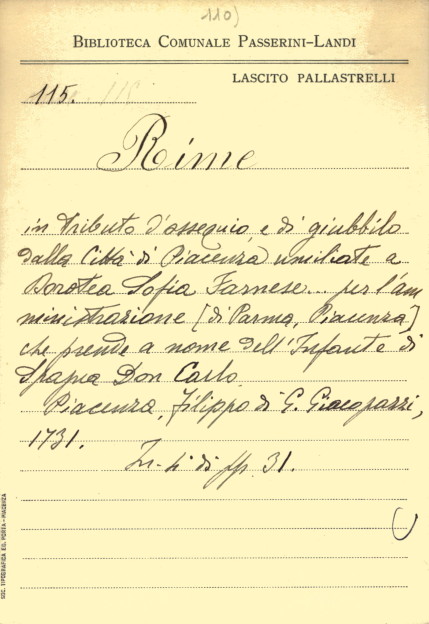 110)
BIBLIOTECA COMUNALE PASSERINI-LANDI
LASCITO PALLASTRELLI
115. 115
Rime
in tributo d'ossequio, e di giubbilo
dalla Città di Piacenza umiliate a
Dorotea Sofia Farnese... per l'am
ministrazione [di Parma, Piacenza]
che prende a nome dell'Infante di
Spagna Don Carlo.
Piacenza, Filippo di G. Giacopazzi,
1731.
In-4 di ff. 31.
SOC. TIPOGRAFICA ED. PORTA-PIACENZA